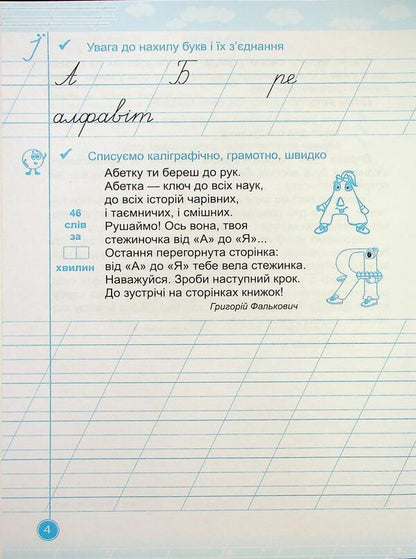 Ї
Увага до нахилу букв і їх з’єднання
А Б ре
алфавіт
Списуємо каліграфічно, грамотно, швидко
Абетку ти береш до рук.
Абетка — ключ до всіх наук,
до всіх історій чарівних,
і таємничих, і смішних.
Рушаймо! Ось вона, твоя
стежиночка від «А» до «Я»...
Остання перегорнута сторінка:
від «А» до «Я» тебе вела стежинка.
Наважуйся. Зроби наступний крок.
До зустрічі на сторінках книжок!
Григорій Фалькович
46
слів
за
хвилин
А
Я
4